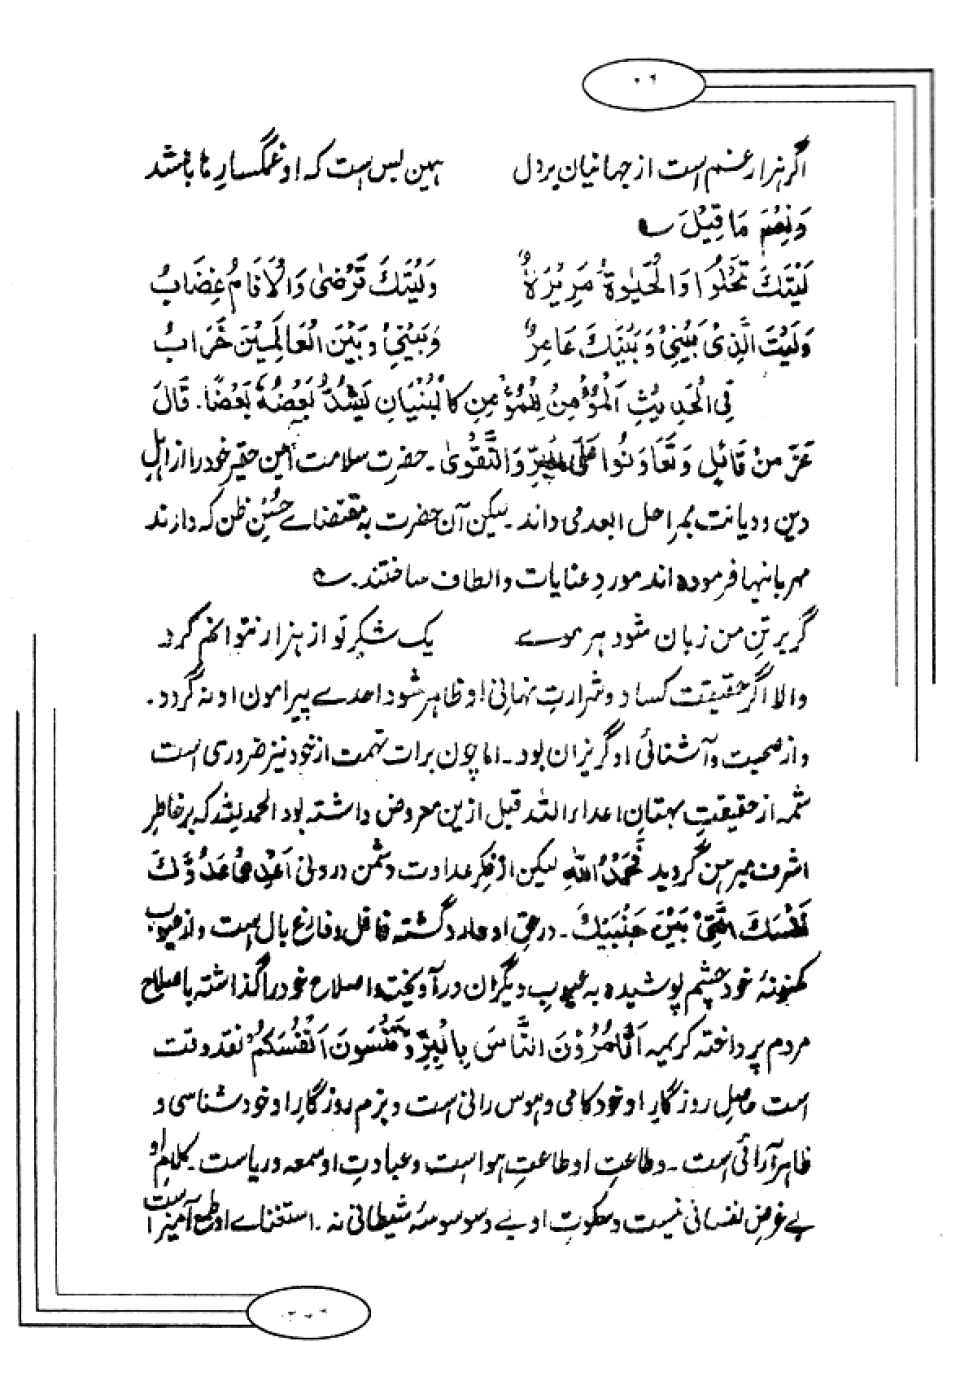 اگر هزار غم است از جهانیان بر دل همین بس است که او غمگسارِ ما باشد
وَنِعْمَ مَا قِیْلَ ؎
لَیْتَكَ تَحْلُوْا وَالْحَیٰوةُ مَرِیْرَةٌ وَلَیْتَكَ تَرْضٰی وَالْاَنَامُ غِضَابُ
وَلَیْتَ الَّذِیْ بَیْنِیْ وَبَیْنَكَ عَامِرٌ وَبَیْنِیْ وَبَیْنَ الْعَالَمِیْنَ خَرَابُ
فِی الْحَدِیْثِ اَلْمُؤْمِنُ لِلْمُؤْمِنِ كَالْبُنْیَانِ یَشُدُّ بَعْضُهٗ بَعْضًا. قَالَ
عَزَّ مَنْ قَائِلٍ وَتَعَاوَنُوْا عَلَی الْبِرِّ وَالتَّقْوٰی ۔ حضرت سلامت این حقیر خود را از اہلِ
دین و دیانت بمراحل ابعد می داند ۔ لیکن آن حضرت بہ مقتضاے حُسنِ ظن کہ دارند
مہربانیہا فرمودہ اند موردِ عنایات و الطاف ساختند ۔ ؎
گر بر تنِ من زبان شود ہر موے یک شکرِ تو از ہزار نتوانم کرد
والا اگر حقیقت کساد و شرارتِ نہانیٔ او ظاہر شود احدے پیرامون او نہ گردد ۔
و از صحبت و آشنائیٔ او گریزان بود ۔ اما چون برات تہمت از خود نیز ضروری است
شمہ از حقیقتِ بہتانِ اعداء اللہ قبل ازین معروض داشتہ بود الحمد للہ کہ بر خاطرِ
اشرف مبرہن گردید فَحَمْدُ اللہِ لیکن از فکر عداوت دشمن درونی اَعْدیٰ عَدُوِّكَ
نَفْسُكَ الَّتِیْ بَیْنَ جَنْبَیْكَ ۔ درحقِ او وارد گشتہ غافل و فارغ بال است و از عیوب
مکنونۂ خود چشم پوشیدہ بہ عیوبِ دیگران در آویختہ و اصلاح خود را گذاشتہ باصلاح
مردم پرداختہ کریمہ اَتَأْمُرُوْنَ النَّاسَ بِالْبِرِّ وَتَنْسَوْنَ اَنْفُسَكُمْ نقد وقت
است حاصلِ روزگارِ او خود کامی و ہوس رانی است و بزم روزگارِ او خود شناسی و
ظاہر آرائی است ۔ و طاعتِ او طاعتِ ہوا است و عبادتِ او سمعہ و ریاست ۔ کلامِ او
بے غرضِ نفسانی نیست و سکوتِ او بے وسوسۂ شیطانی نہ ۔ استغناے او طمع آمیز است